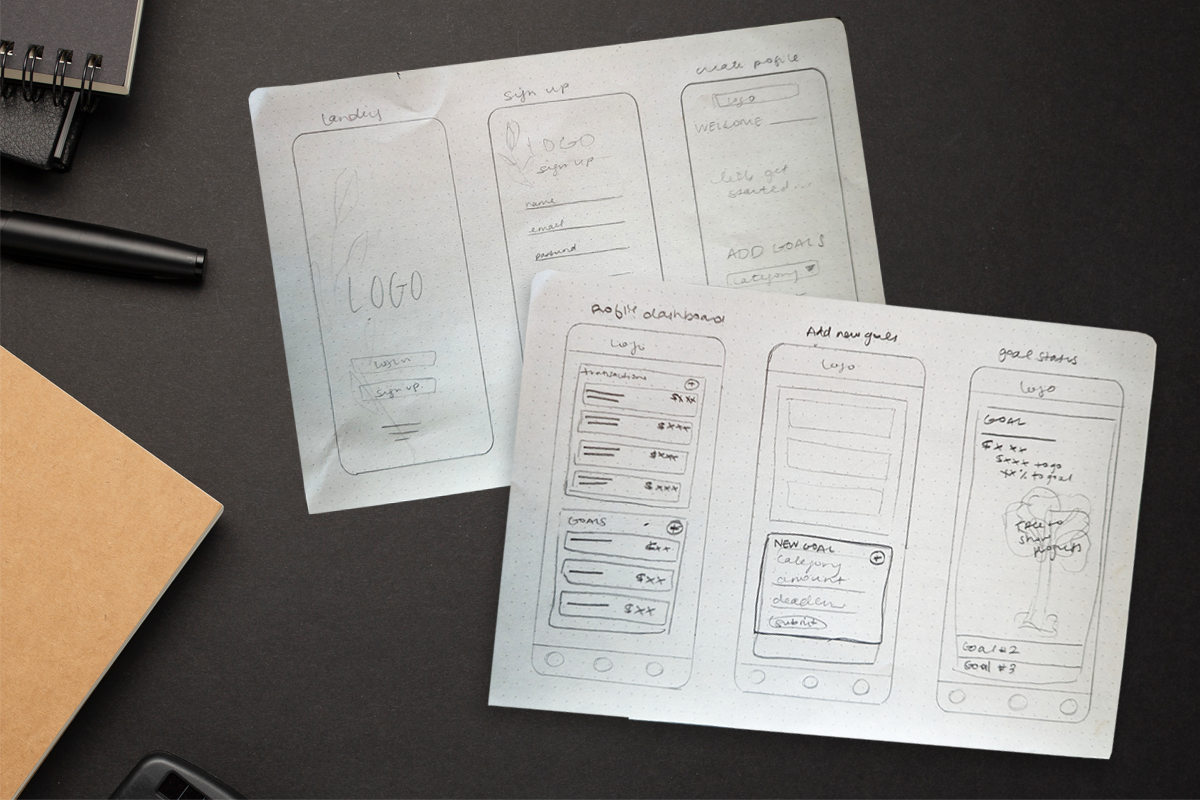 landing
LOGO
login
sign up
sign up
LOGO
sign up
name
email
password
create profile
logo
WELCOME
let's get
started...
ADD GOALS
category
profile dashboard
logo
transactions
+
$xxx
$xxx
$xxx
$xxx
GOALS
+
$xx
$xx
$xx
Add new goals
logo
NEW GOAL
+
category
amount
deadline
submit
goal status
logo
GOAL
$x xx
$xxx to go
xx% to goal
tree to
show
progress
Goal #2
Goal #3